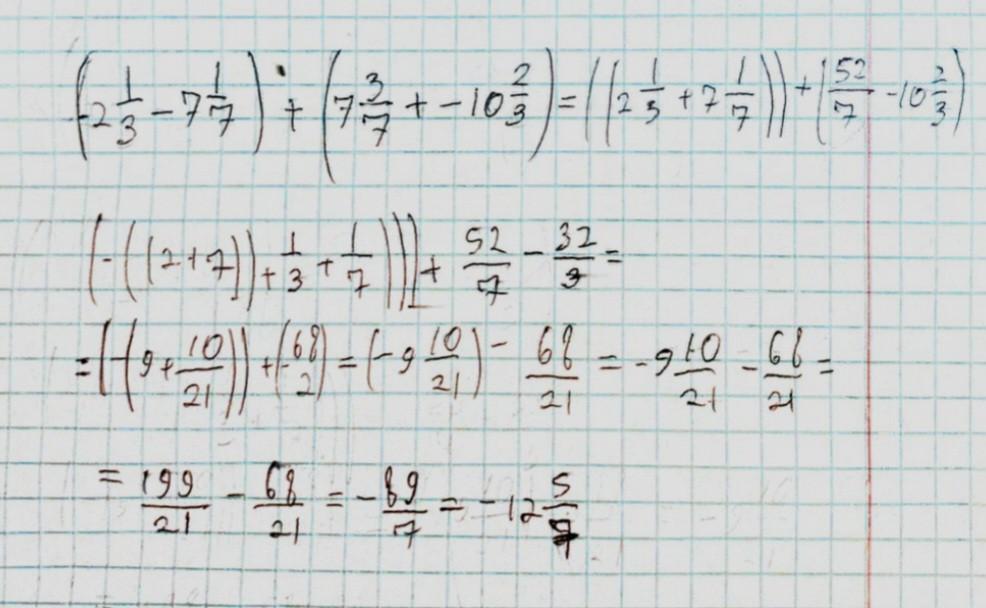 (-2 1/3 - 7 1/7) + (7 3/7 + -10 2/3) = ((2 1/3 + 7 1/7)) + (52/7 - 10 2/3)
(-((2+7]) + 1/3 + 1/7)))] + 52/7 - 32/3 =
= (-(9 + 10/21)) + (-68/2) = (-9 10/21) - 68/21 = -9 10/21 - 68/21 =
= 199/21 - 68/21 = -89/7 = -12 5/7